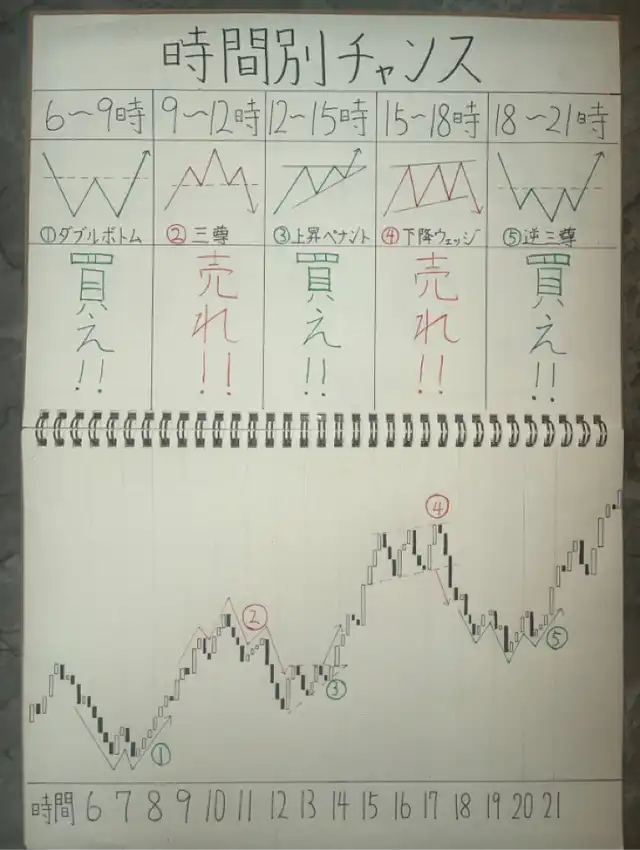 時間別チャンス
6〜9時 9〜12時 12〜15時 15〜18時 18〜21時
①ダブルボトム ②三尊 ③上昇ペナント ④下降ウェッジ ⑤逆三尊
買え!! 売れ!! 買え!! 売れ!! 買え!!
④
②
⑤
③
①
時間 6 7 8 9 10 11 12 13 14 15 16 17 18 19 20 21